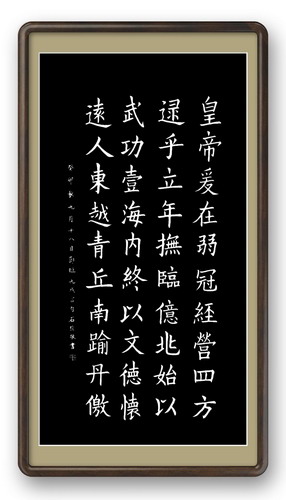 皇帝爰在弱冠經營四方
逯乎立年撫臨億兆始以
武功壹海內終以文德懷
遠人東越青丘南踰丹儌